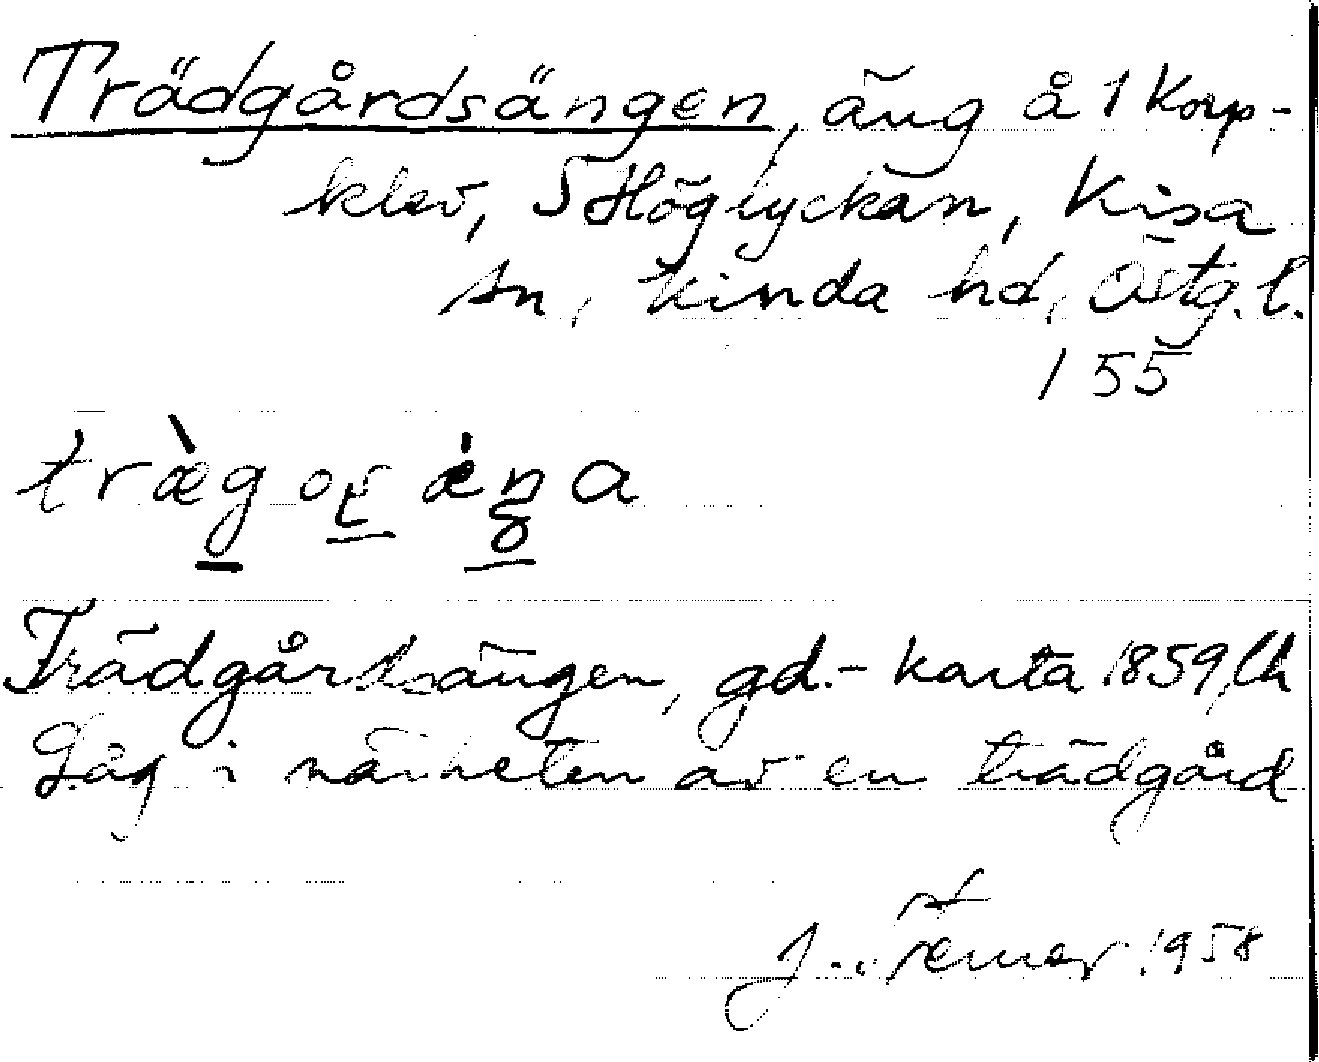 Trädgårdsängen, äng å 1 Korp-
klev, S Höglyckan, Kisa
sn, Kinda hd, Östg.l.
155
Trädgårdsängen, gd.-karta 1859,
Låg i närheten av en trädgård
J. 1958